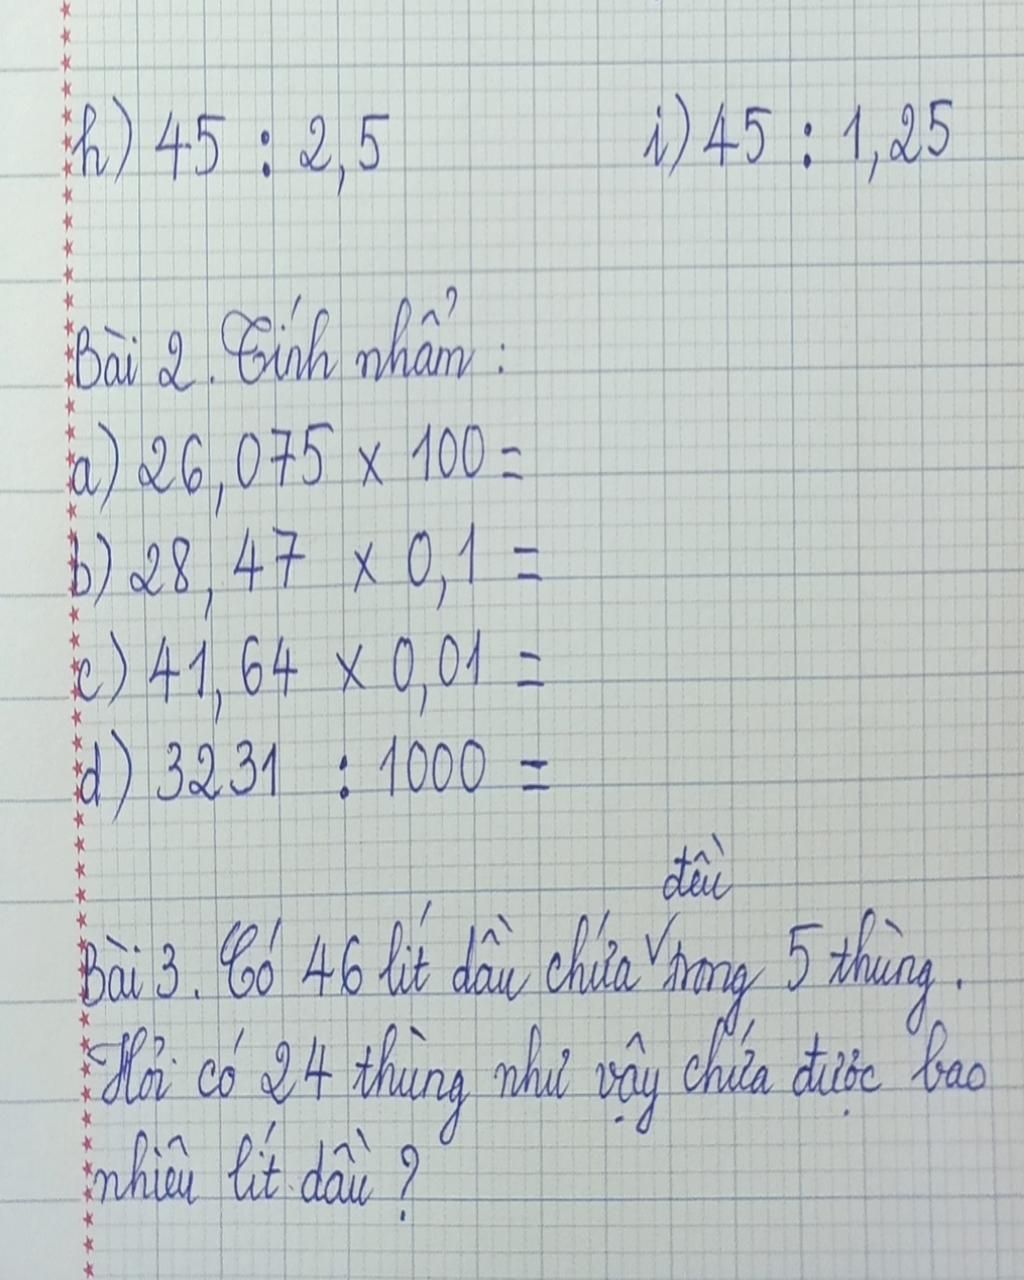 h) 45 : 2,5 i) 45 : 1,25
Bài 2. Tính nhẩm :
a) 26,075 x 100 =
b) 28,47 x 0,1 =
c) 41,64 x 0,01 =
d) 3231 : 1000 =
đều
Bài 3. Có 46 lít dầu chứa √ trong 5 thùng.
Hỏi có 24 thùng như vậy chứa được bao
nhiêu lít dầu ?